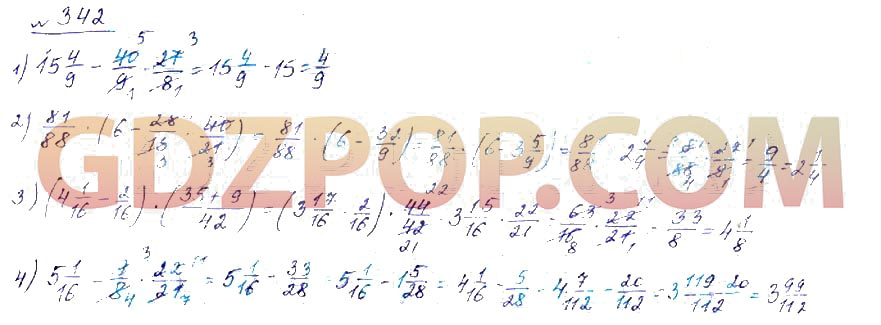 № 342
1) 15 4/9 - 40/9 · 27/8 = 15 4/9 - 15 = 4/9
2) 81/88 · (6 - 28/15 · 40/21) = 81/88 · (6 - 32/9) = 81/88 · (6 - 3 5/9) = 81/88 · 2 4/9 = 81/88 · 22/9 = 9/4 = 2 1/4
3) (4 1/16 - 2/16) · (35+9/42) = (3 17/16 - 2/16) · 44/42 = 3 15/16 · 22/21 = 63/16 · 22/21 = 33/8 = 4 1/8
4) 5 1/16 - 22/21 = 5 1/16 - 33/28 = 5 1/16 - 1 5/28 = 4 1/16 - 5/28 = 4 7/112 - 20/112 = 3 119-20/112 = 3 99/112
GDZPOP.COM